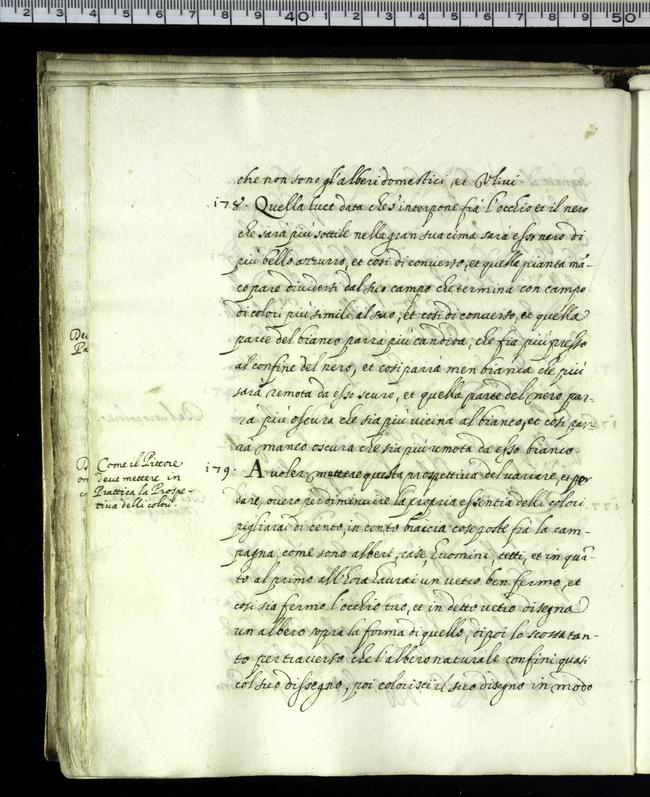 che non sono gl'alberi domestici, et Vliui.
178. Quella luce data che s'interpone frà l'occhio et il nero
che sarà più sottile nella gran sua cima sarà esso nero di
più bello azzurro, et così di conuerso, et quella pianta mã-
co pare diuidersi dal suo campo che termina con campo
di colori più simili al suo, et così di conuerso, et quella
parte del bianco parrà più candida, che fia più presso
al confine del nero, et così parrà men bianca che più
sarà remota da esso scuro, et quella parte del nero par-
rà più oscura che sia più vicina al bianco, et così par-
rà manco oscura che sia più remota da esso bianco.
Come il Pittore
deue mettere in
Prattica la Prospe-
tiua delli colori.
179. A voler mettere questa prospettiua del uariare, et per
dare, ouero per diminuire la propria essentia delli colori
pigliarai di cento, in cento braccia cose poste frà la cam-
pagna, come sono alberi, case, huomini, et siti, et in quã-
to al primo albero haurai un uetro ben fermo, et
così sia fermo l'occhio tuo, et in detto uetro disegna
un albero sopra la forma di quello, di poi lo scosta tan-
to per trauerso che l'albero naturale confini quasi
col suo dissegno, poi colorisci il suo disegno in modo